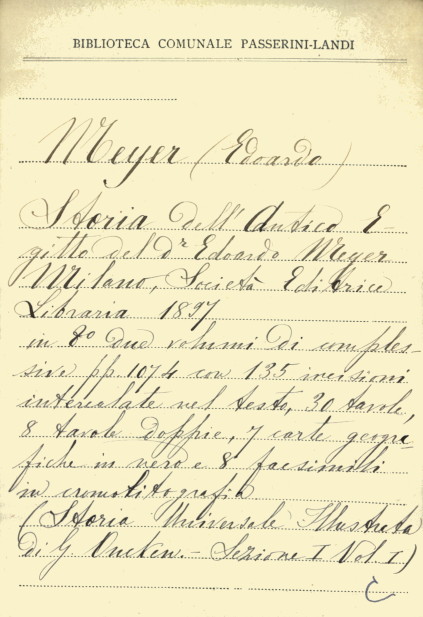 BIBLIOTECA COMUNALE PASSERINI-LANDI
Meyer (Edoardo)
Storia dell'Antico E-
gitto del dr Edoardo Meyer
Milano, Società Editrice
Libraria 1897
in 8º due volumi di comples-
sive pp. 1074 con 135 incisioni
intercalate nel testo, 30 tavole,
8 tavole doppie, 7 carte geogra-
fiche in nero e 8 facsimili
in cromolitografia
(Storia Universale Illustrata
di G. Oncken. - Sezione I Vol I)